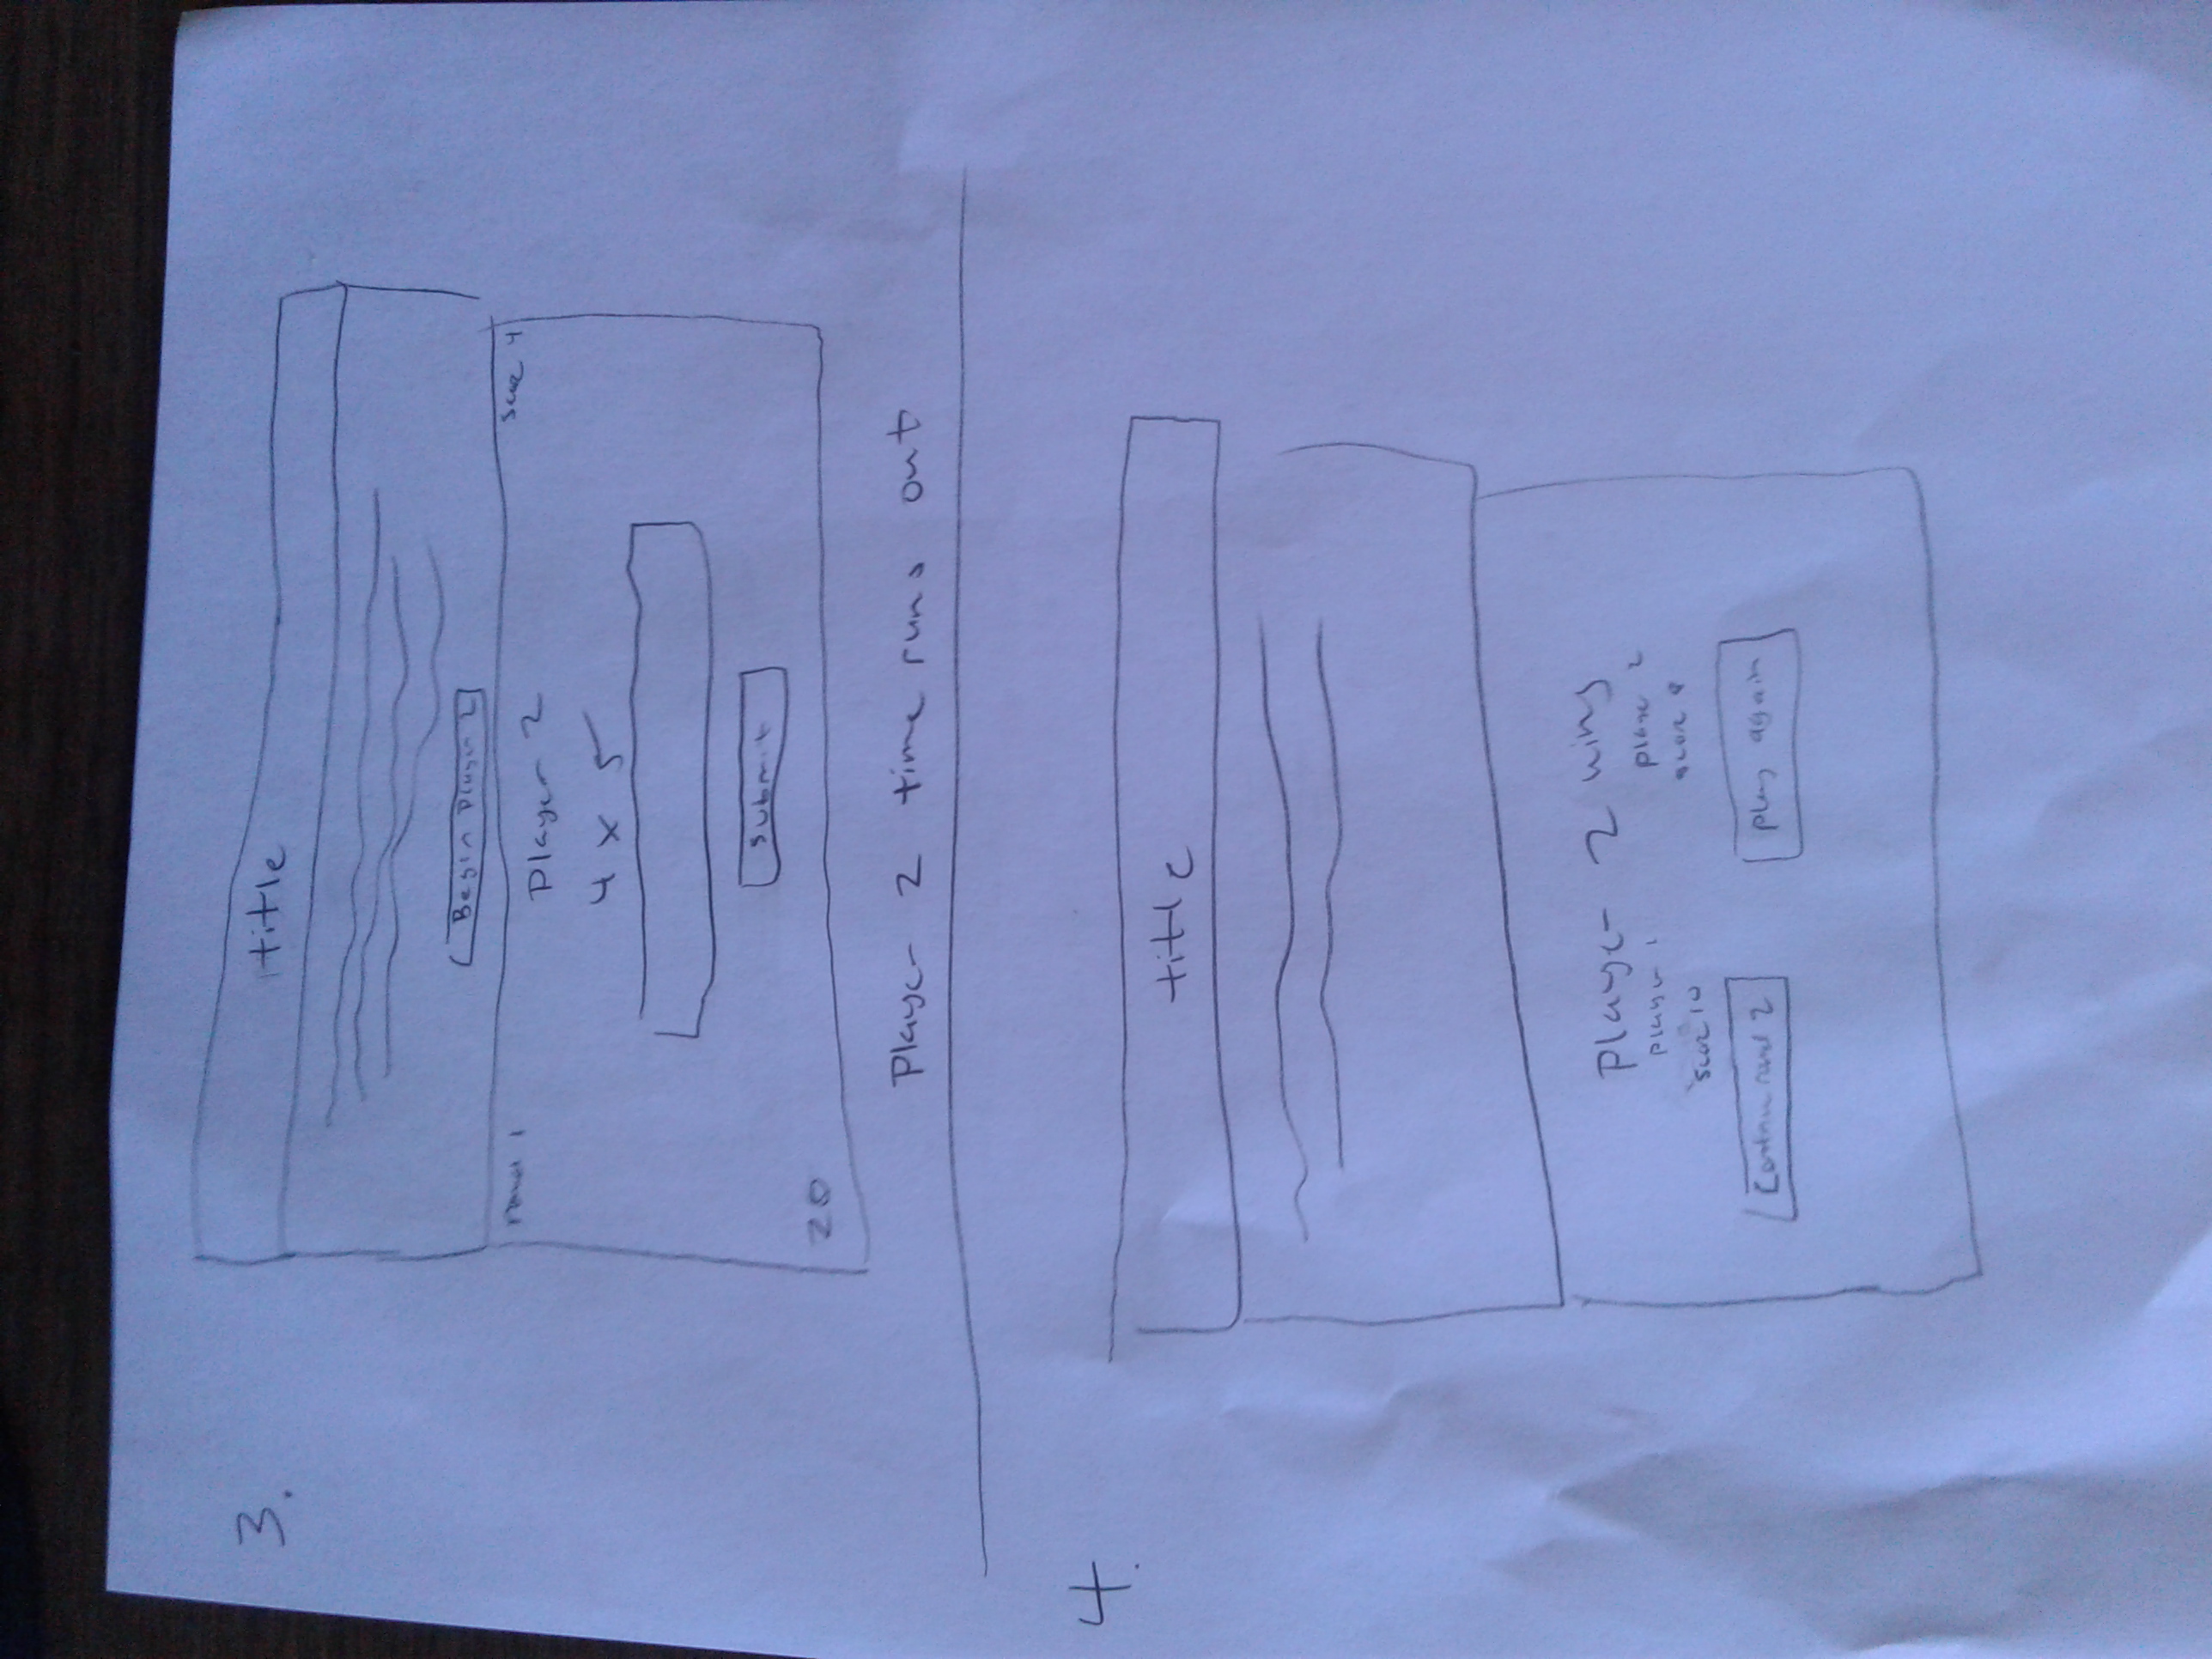 3.
title
Begin Player 2
round 1
score 4
Player 2
4 x 5
submit
20
Player 2 time runs out
4.
title
Player 2 wins
player 1
player 2
score 10
score 8
Continue round 2
play again